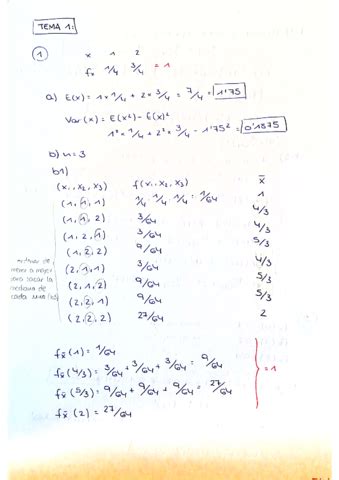 TEMA 1:
① x 1 2
fx 1/4 3/4 = 1
a) E(x) = 1 x 1/4 + 2 x 3/4 = 7/4 = 1'75
Var(x) = E(x²) - E(x)²
1² x 1/4 + 2² x 3/4 - 1'75² = 0'1875
b) n = 3
b1)
(x₁, x₂, x₃) f(x₁, x₂, x₃) x̄
(1, 1, 1) 1/4 · 1/4 · 1/4 = 1/64 1
(1, 1, 2) 3/64 4/3
(1, 2, 1) 3/64 5/3
(1, 2, 2) 9/64
(2, 1, 1) 3/64 4/3
(2, 1, 2) 9/64 5/3
(2, 2, 1) 9/64 5/3
(2, 2, 2) 27/64 2
de
menor a mayor
para sacar la
mediana de
cada
fx̄ (1) = 1/64
fx̄ (4/3) = 3/64 + 3/64 + 3/64 = 9/64
fx̄ (5/3) = 9/64 + 9/64 + 9/64 = 27/64
fx̄ (2) = 27/64
= 1